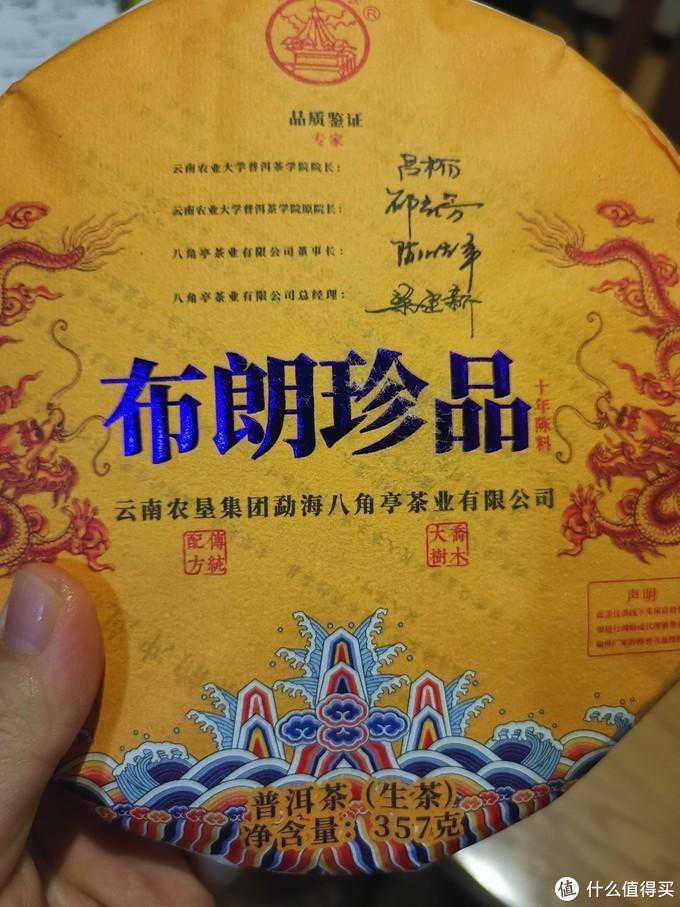 ®
品质鉴证
专家
云南农业大学普洱茶学院院长：
云南农业大学普洱茶学院原院长：
八角亭茶业有限公司董事长：
八角亭茶业有限公司总经理： 梁建新
布朗珍品
十年陈料
云南农垦集团勐海八角亭茶业有限公司
傳統
配方
喬木
大樹
声明
普洱茶（生茶）
净含量：357克
值 什么值得买